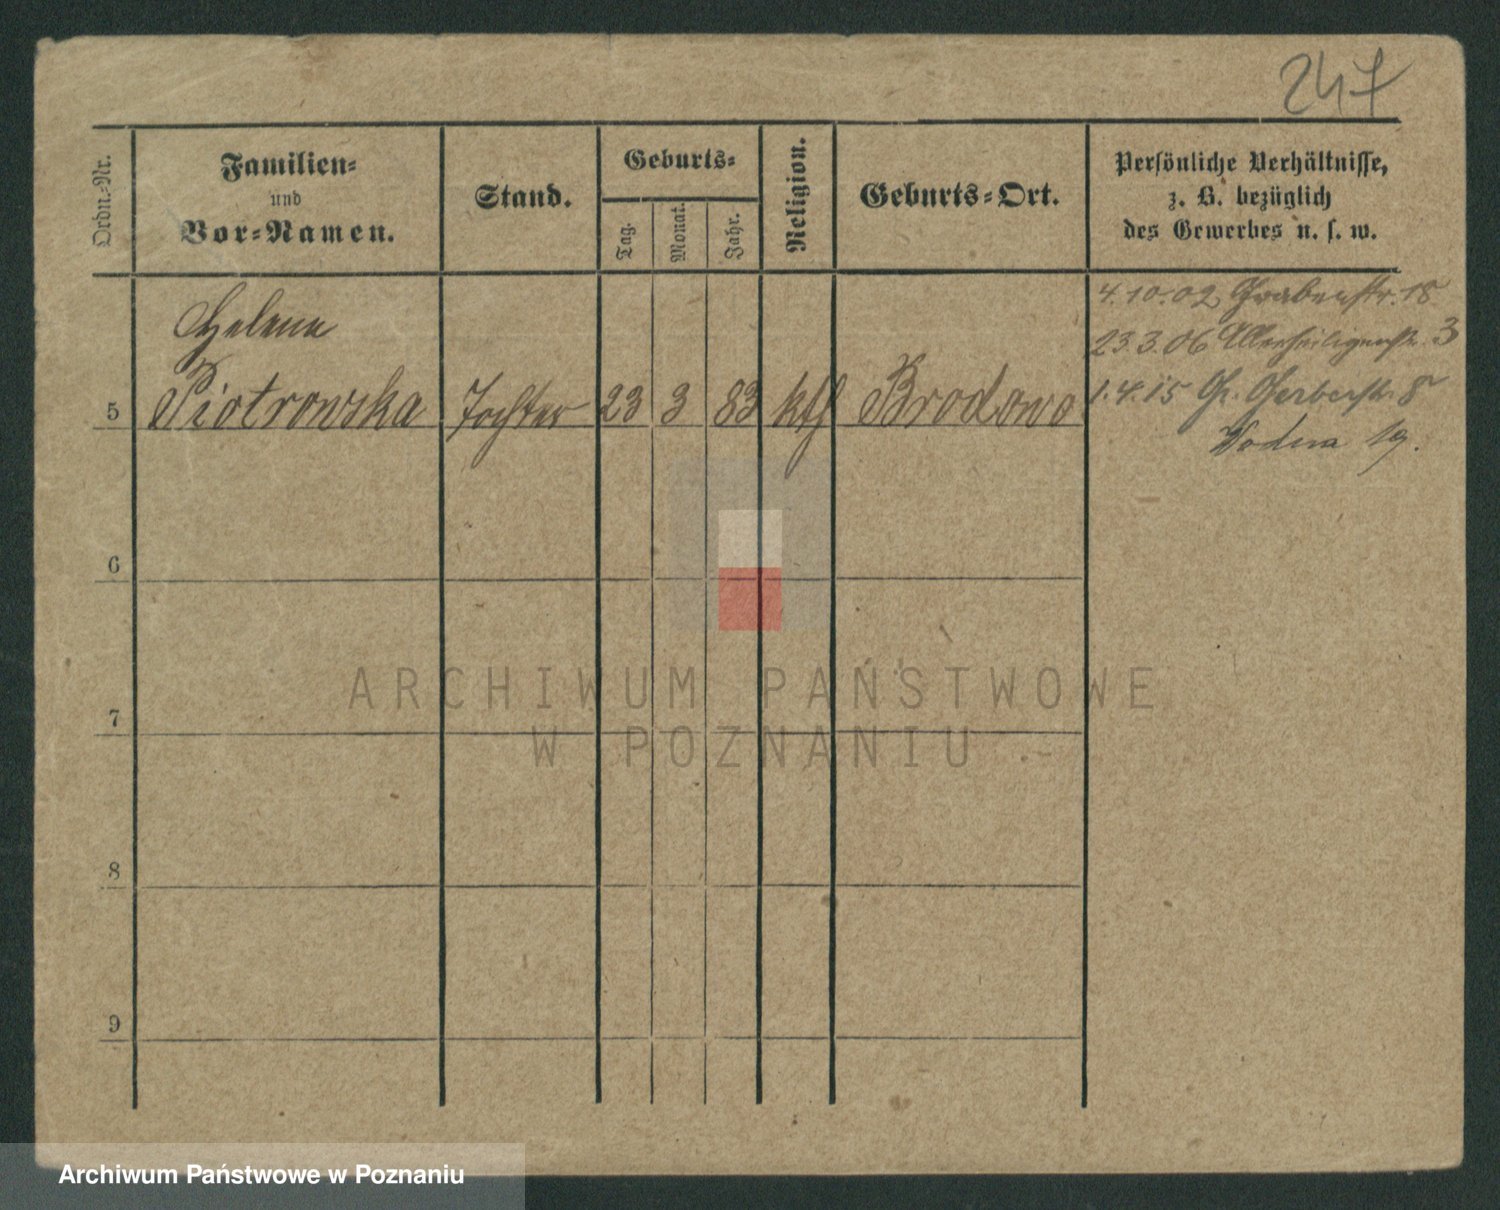 247
Ordn.-Nr.
Familien-
und
Vor-Namen.
Stand.
Geburts-
Tag.
Monat.
Jahr.
Religion.
Geburts-Ort.
Persönliche Verhältnisse,
z. B. bezüglich
des Gewerbes u. s. w.
4.10.02 Grabenstr. 18
Helene
23.3.06 Allerheiligenstr. 3
5 Piotrowska Tochter 23 3 83 kth Brodowo 1.4.15 Gr. Gerberstr. 8
Wodna 19.
6
7
8
9
ARCHIWUM PAŃSTWOWE
W POZNANIU
Archiwum Państwowe w Poznaniu